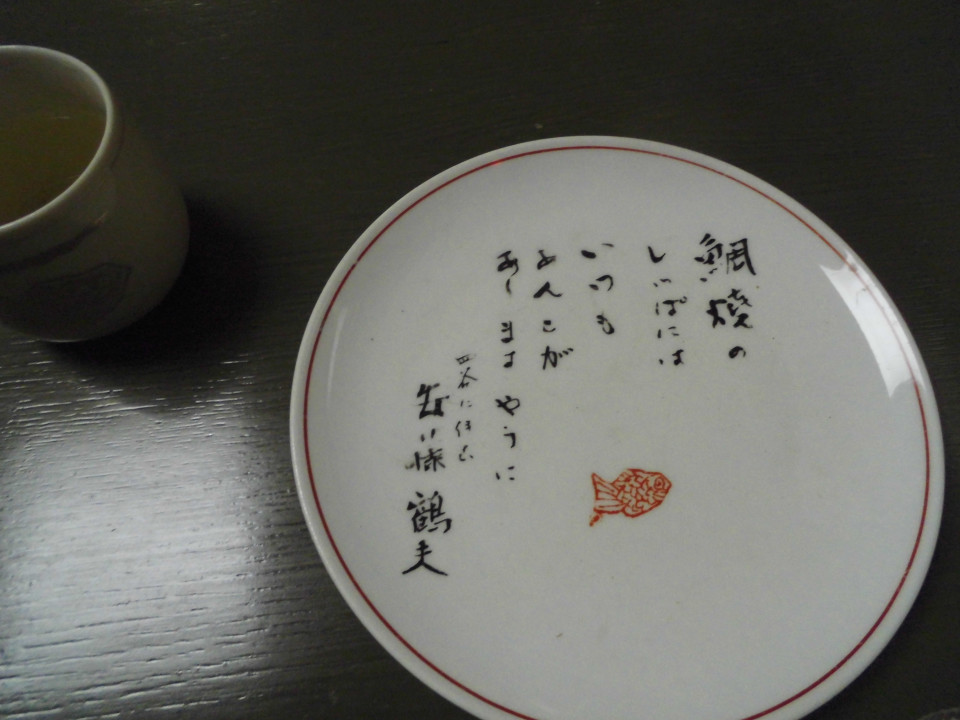 鯛燒の
しっぽには
いつも
あんこが
ありますやうに
四谷に住む
鶴夫